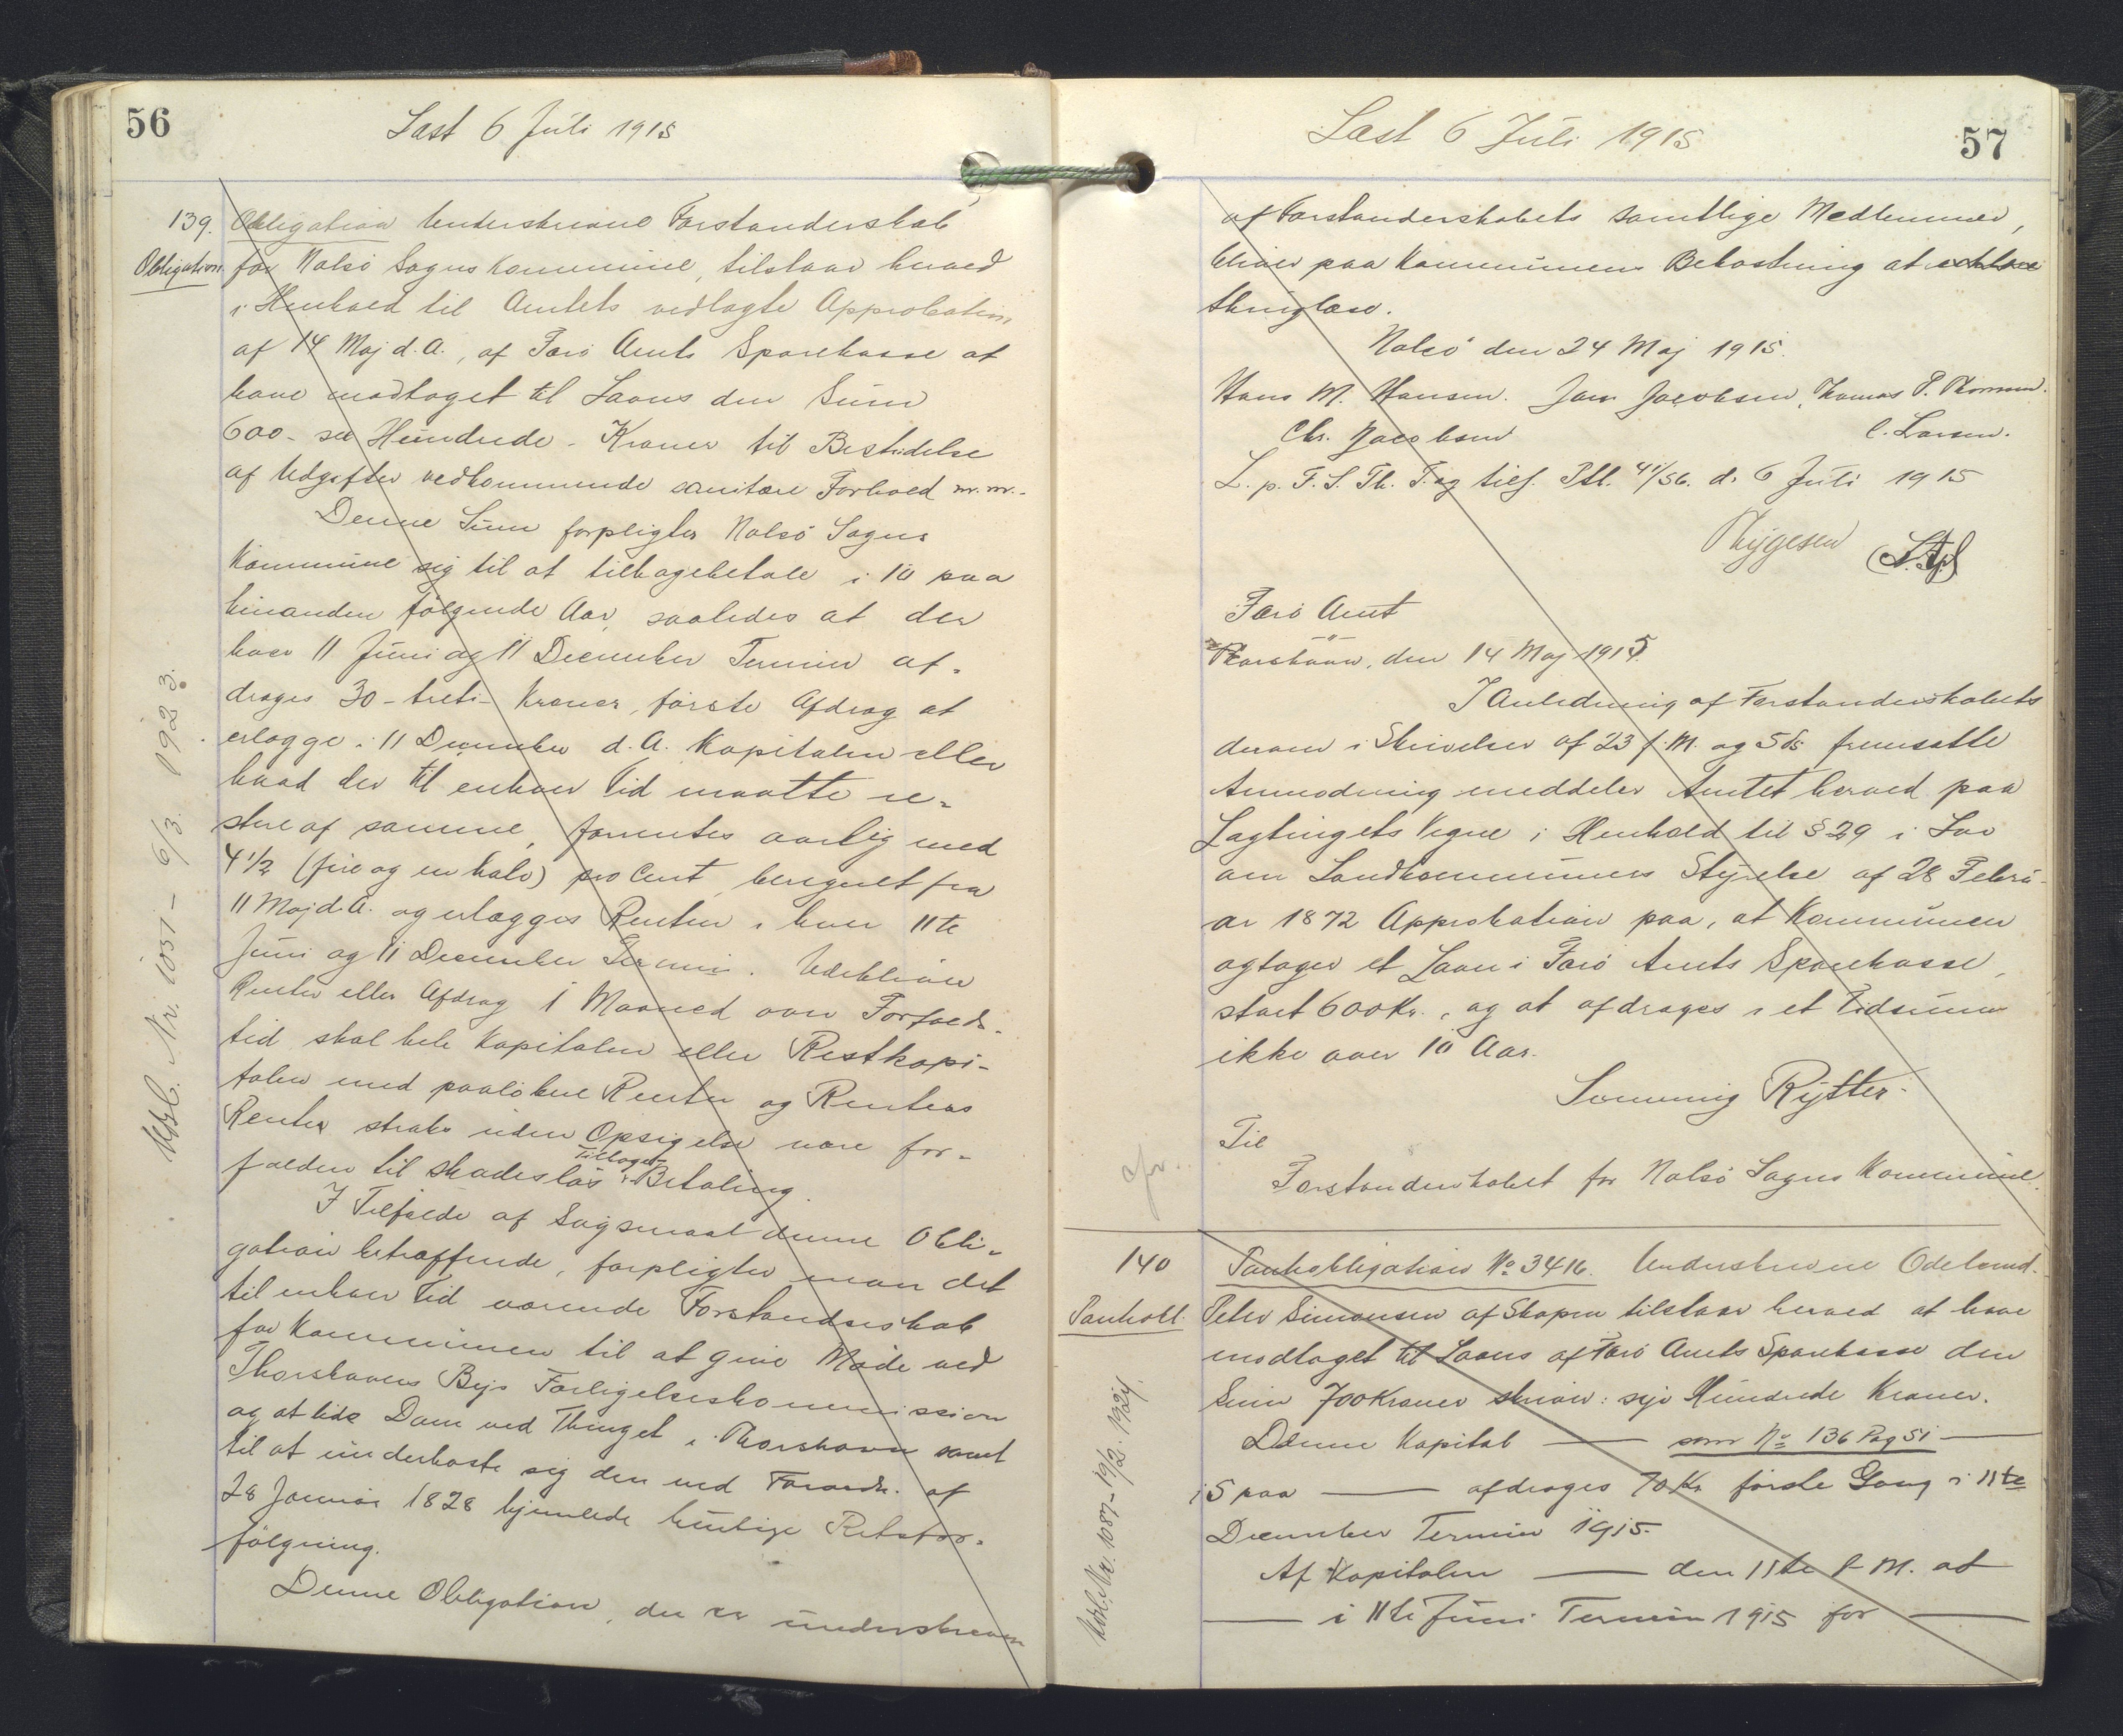 56
Læst 6 Juli 1915
139.
Obligation
Obligation Underskrevne Forstanderskab
for Nolsö Sogns Kommune, tilstaar herved
i Henhold til Amtets vedlagte Approbation
af 14 Maj d.A., af Færö Amts Sparekasse at
have modtaget til Laans den Sum
600 - sex Hundrede - Kroner til Bestridelse
af Udgifter vedkommende sanitære Forhold m.m.-
Denne Sum forpligter Nolsö Sogns
Kommune sig til at tilbagebetale i 10 paa
hinanden følgende Aar, saaledes at der
hver 11 Juni og 11 December Termin af-
drages 30 - treti - Kroner, förste Afdrag at
erlægge i 11 December d.A. Kapitalen eller
hvad der til enhver Tid maatte re-
stere af samme, forrentes aarlig med
4 1/2 (fire og en halv) pro Cent, beregnet fra
11 Maj d.A. og erlægges Renten i hver 11te
Juni og 11 December Termin. Udeblive
Renter eller Afdrag 1 Maaned over Forfalds-
tid skal hele Kapitalen eller Restkapi-
talen med paalöbne Renter og Renters
Renter straks uden Opsigelse være for-
falden til skadeslös Tilbage-Betaling.
I Tilfælde af Sagsmaal denne Obli-
gation betræffende, forpligter man det
til enhver Tid værende Forstanderskab
for Kommunen til at give Möde ved
Thorshavns Byes Forligelseskommission
og at lide Dom ved Thinget i Thorshavn samt
til at underkaste sig den ved Forordn. af
28 Januar 1828 hjemlede hurtige Retsfor-
følgning.
Denne Obligation, der er underskreven
Udsl. Nr. 1051 - 6/3. 1923.
57
Læst 6 Juli 1915
af Forstanderskabets samtlige Medlemmer,
bliver paa Kommunens Bekostning at
thinglæse.
Nolsö den 24 Maj 1915.
Hans M. Hansen. Joen Jacobsen, Thomas P. Thomsen.
Chr. Jacobsen C. Larsen.
L. p. F. S. Th. T. og tilf. Ptl. 41/56. d. 6 Juli 1915
Thygesen
Færö Amt
Thorshavn, den 14 Maj 1915.
I Anledning af Forstanderskabets
derom i Skrivelser af 23 f.M. og 5 ds. fremsatte
Anmodning meddeler Amtet herved paa
Lagtingets Vegne i Henhold til § 29 i Lov
om Landkommuners Styrelse af 28 Febru-
ar 1872 Approbation paa, at Kommunen
optager et Laan i Færö Amts Sparekasse,
stort 600 Kr., og at afdrages i et Tidsrum
ikke over 10 Aar.
Svenning Rytter.
Til
Forstanderskabet for Nolsö Sogns Kommune.
140
Pantobl.
Pantobligation No 3416. Underskrevne Odelsmd.
Peter Simonsen af Skopen tilstaar herved at have
modtaget til Laans af Færö Amts Sparekasse den
Sum 700 Kroner skriver: syv Hundrede Kroner.
Denne Kapital — som No 136 Pag 51 —
i 5 paa — afdrages 70 Kr förste Gang i 11te
December Termin 1915.
Af Kapitalen — den 11te f.M. at
— i 11te Juni Termin 1915 for —
Udsl. Nr. 1087 - 19/2. 1924.